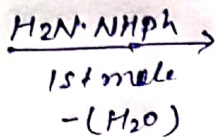 H2N·NHph
1st mole
-(H2O)